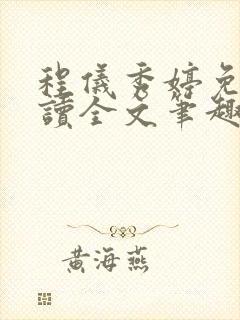 程儀秀婷免
讀全文筆趣
黃海燕